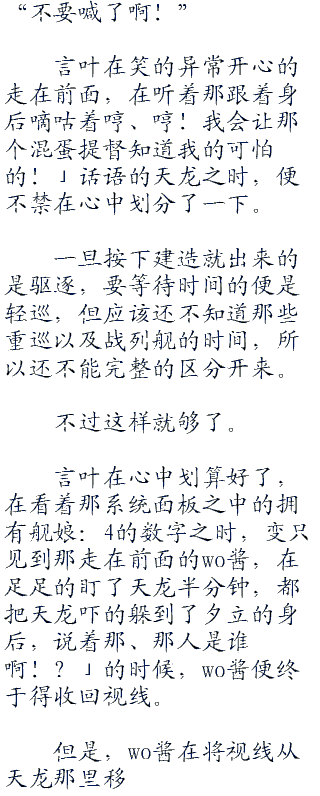 “不要喊了啊！”
言叶在笑的异常开心的
走在前面，在听着那跟着身
后嘀咕着哼、哼！我会让那
个混蛋提督知道我的可怕
的！」话语的天龙之时，便
不禁在心中划分了一下。
一旦按下建造就出来的
是驱逐，要等待时间的便是
轻巡，但应该还不知道那些
重巡以及战列舰的时间，所
以还不能完整的区分开来。
不过这样就够了。
言叶在心中划算好了，
在看着那系统面板之中的拥
有舰娘：4的数字之时，变只
见到那走在前面的wo酱，在
足足的盯了天龙半分钟，都
把天龙吓的躲到了夕立的身
后，说着那、那人是谁
啊！？」的时候，wo酱便终
于得收回视线。
但是，wo酱在将视线从
天龙那里移